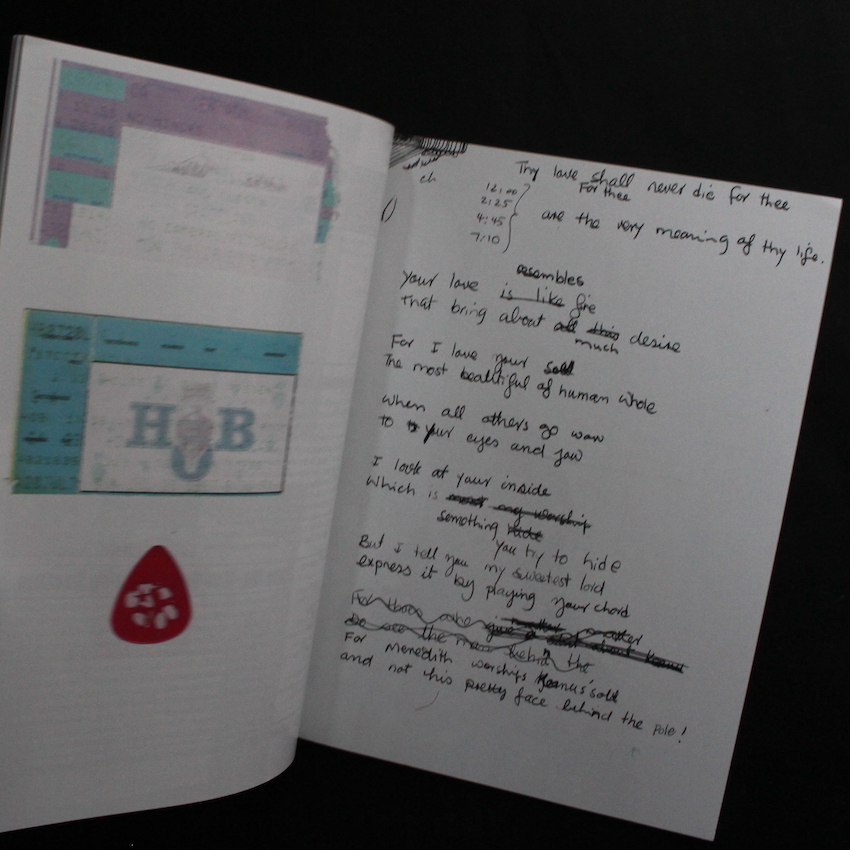 HOB
ch
Thy love shall never die for thee
For thee
12:00
2:25
4:45
7:10
are the very meaning of thy life.
resembles
Your love is like fire
That bring about all this desire
much
For I love your soul
The most beautiful of human whole
When all others go waw
to your eyes and jaw
I look at your inside
Which is most my worship
something
you try to hide
But I tell you my sweetest lord
express it by playing your chord
For those who
Do see the man behind the
For Meredith worships Keanus' soul
and not his pretty face behind the pole!